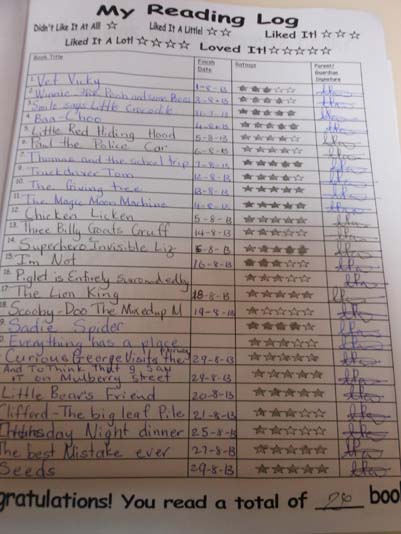 My Reading Log
Didn't Like It At All! ☆ Liked It A Little! ☆☆ Liked It! ☆☆☆
Liked It A Lot! ☆☆☆☆ Loved It! ☆☆☆☆☆
Book Title Finish Date Ratings Parent/Guardian Signature
1. Vet Vicky 1-8-13
2. Winnie the Pooh and some Bees 2-8-13
3. Smile says Little Crocodile
4. Baa-Choo 4-8-13
5. Little Red Hiding Hood 5-8-13
6. Paul the Police Car 6-8-13
7. Thomas and the school trip 7-8-13
9. Truckdriver Tom 12-8-13
10. The Giving tree 13-8-13
11. The Magic Moon Machine 4-8-13
12. Chicken Licken 5-8-13
13. Three Billy Goats Gruff 14-8-13
14. Superhero's Invisible Liz 5-8-13
15. I'm Not 16-8-13
16. Piglet is Entirely Surrounded by
17. The Lion King 18-8-13
18. Scooby-Doo The Mixedup M 19-8-13
Sadie Spider
Everything has a place
Curious George Visits the 29-8-13
And To Think That I Saw
it on Mulberry Street 29-8-13
Little Bear's Friend 20-8-13
Clifford-The big leaf Pile 21-8-13
Thursday Night dinner 25-8-13
The best Mistake ever 27-8-13
Seeds 29-8-13
gratulations! You read a total of boo